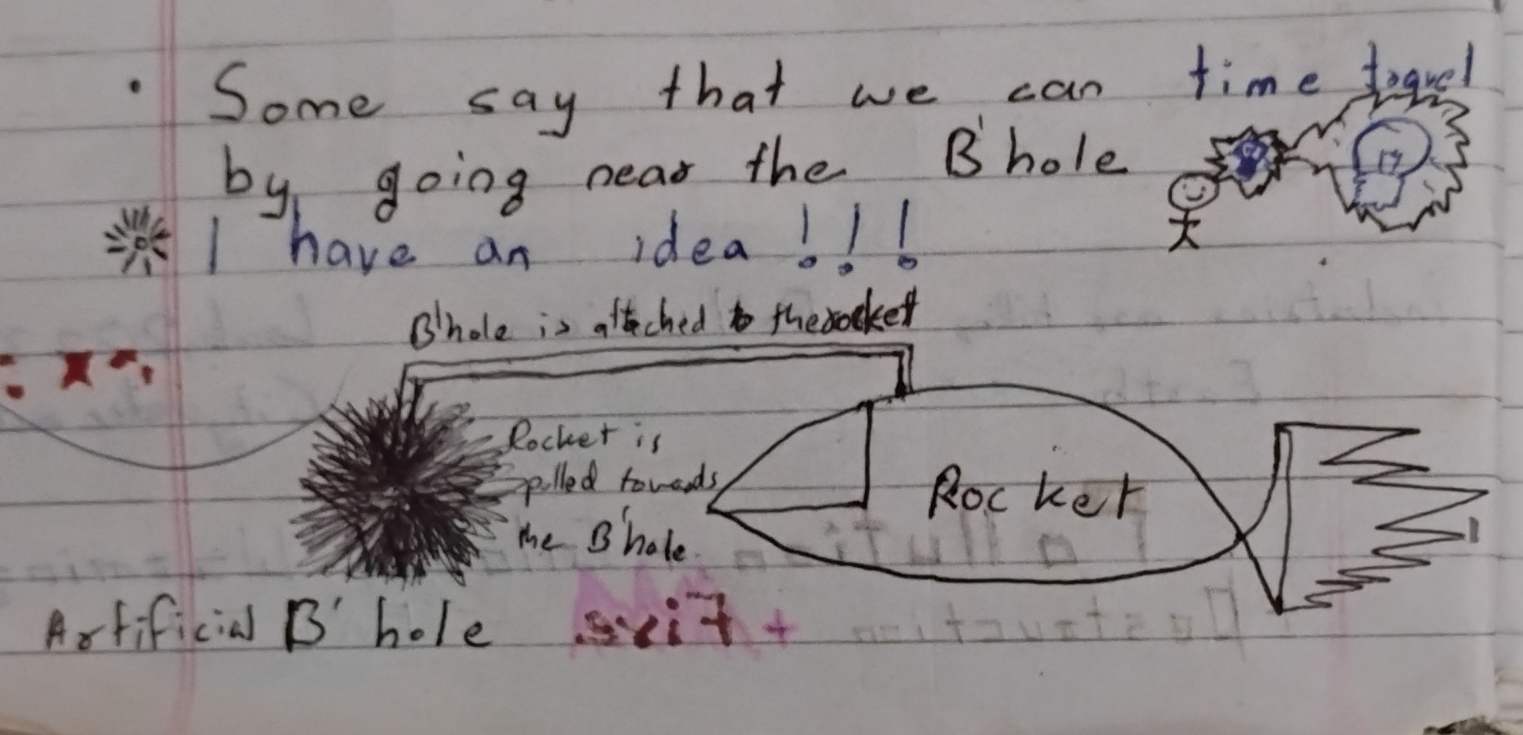 • Some say that we can time travel
by going near the B'hole
I have an idea!!!
B'hole is attached to the rocket
Rocket is
pulled towards
the B'hole.
Rocket
Artificial B'hole